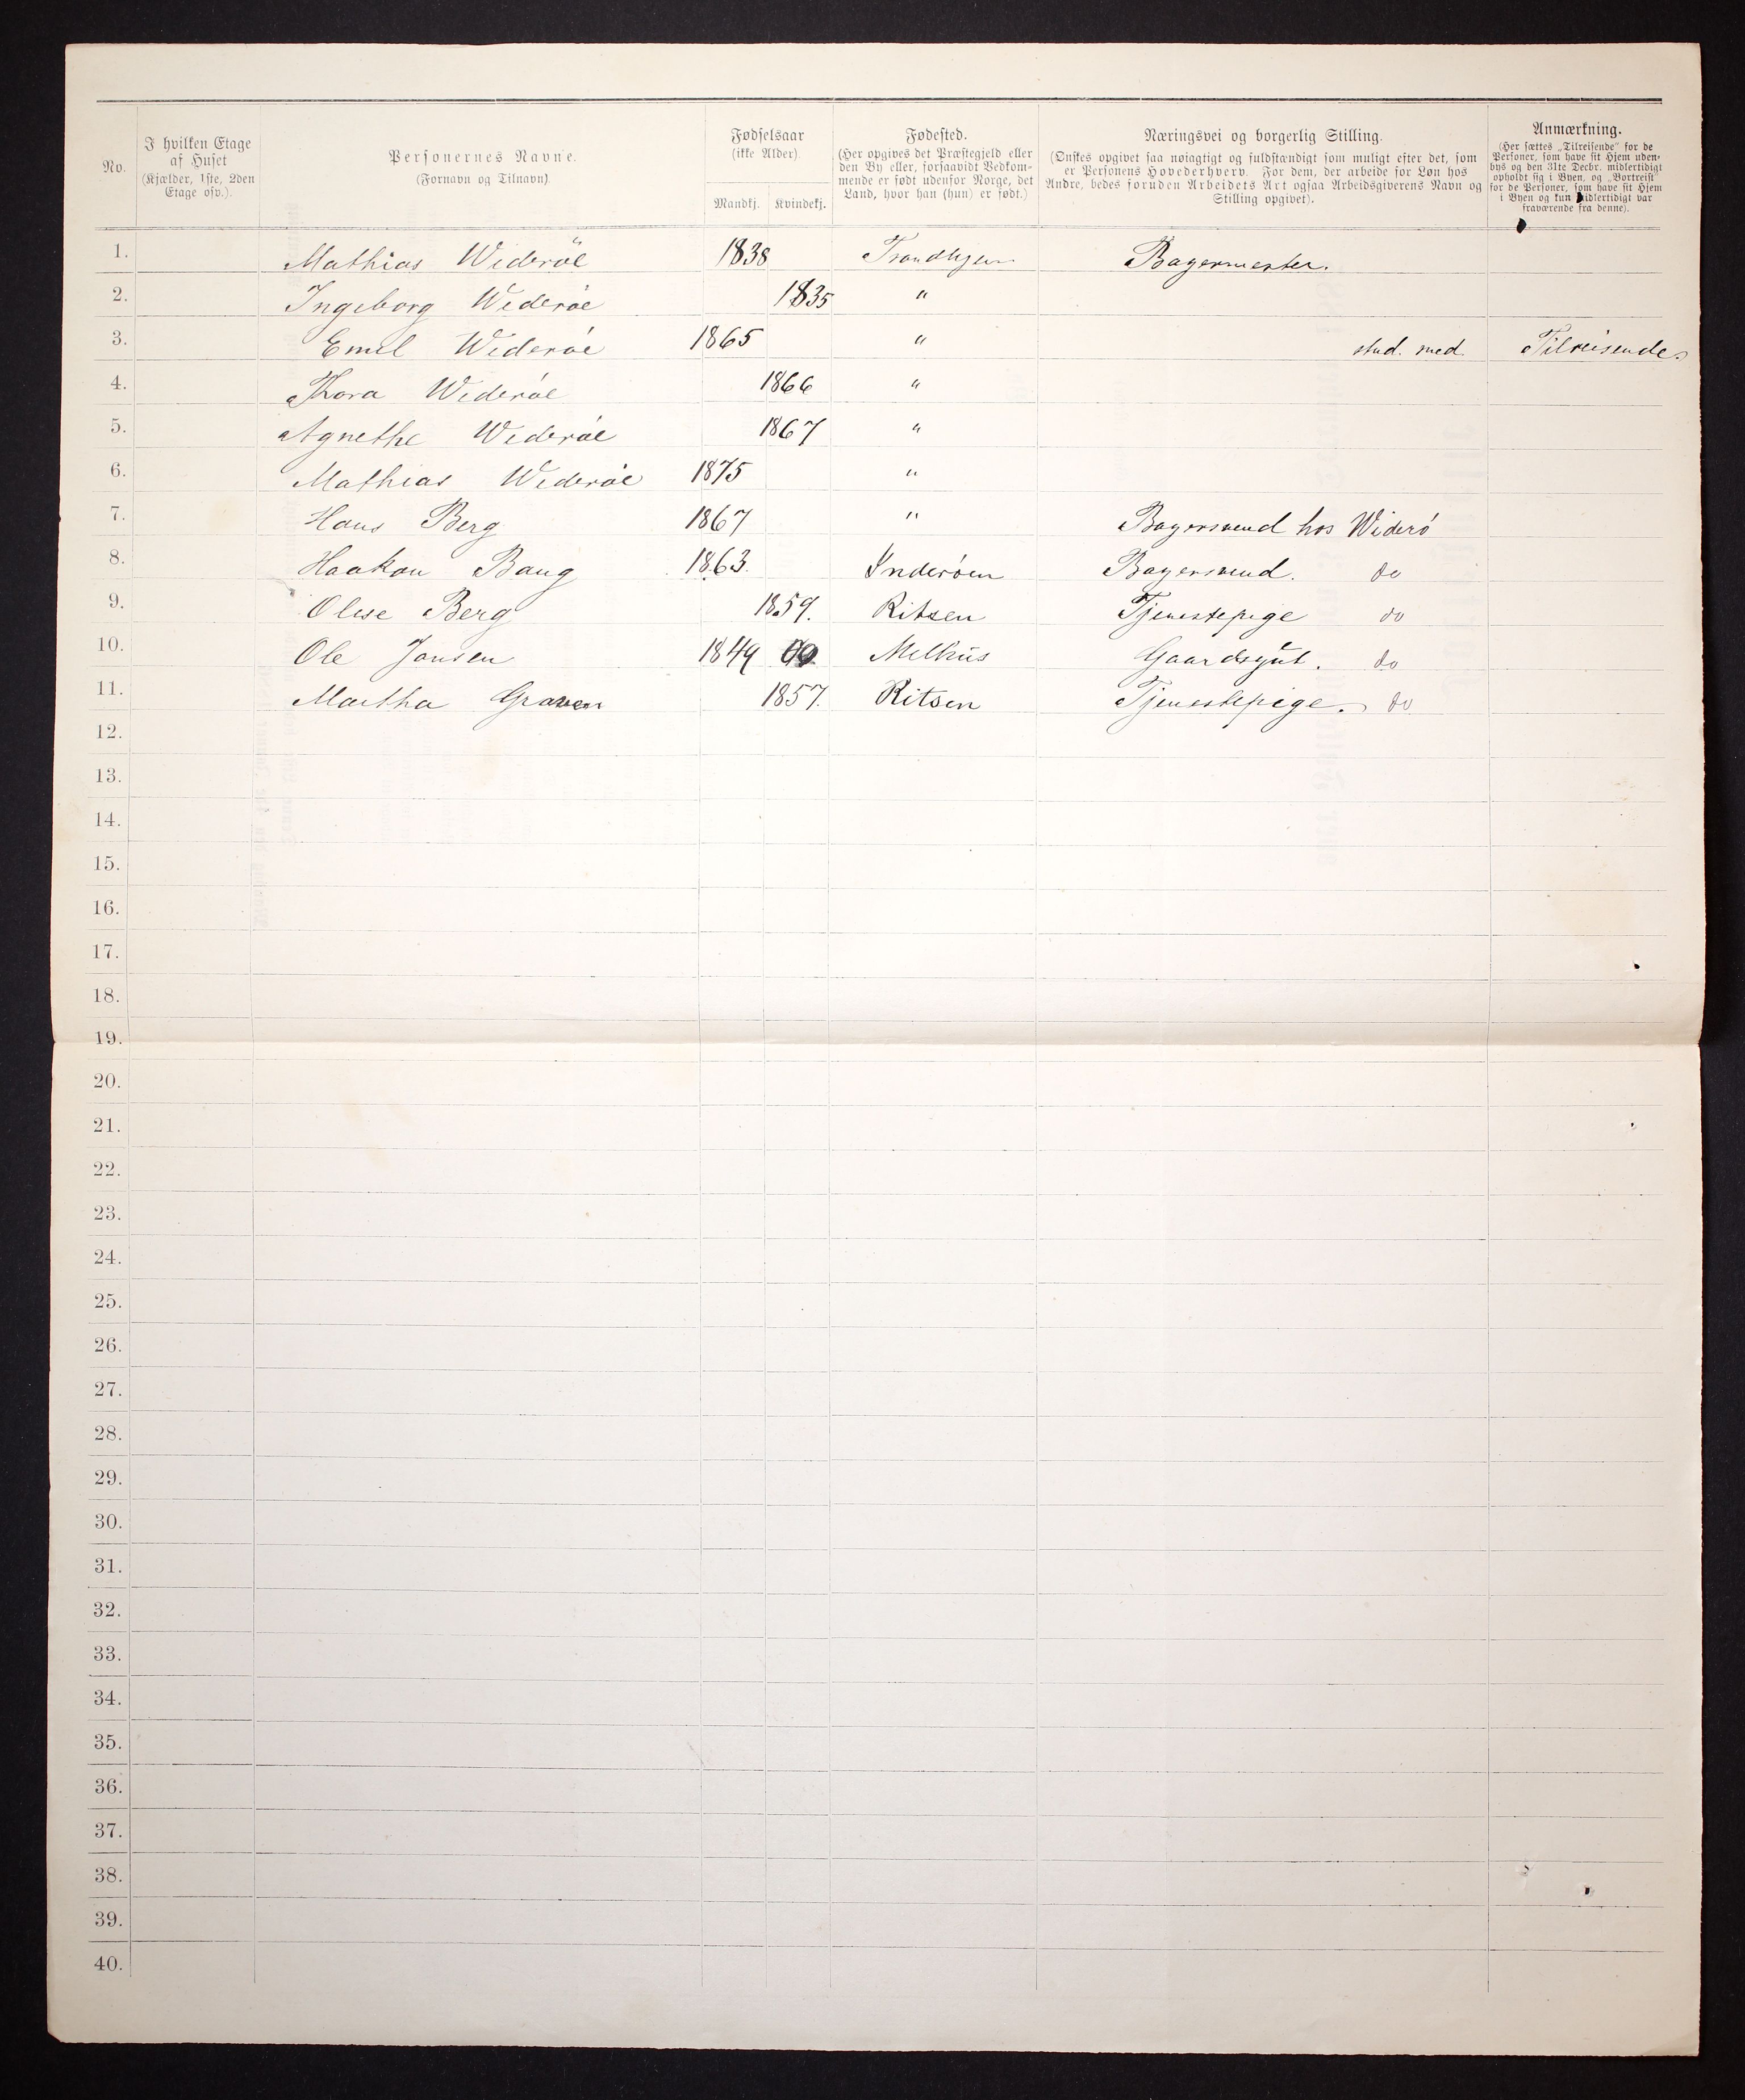 No.
I hvilken Etage
af Huset
(Kjælder, 1ste, 2den
Etage osv.).
Personernes Navne.
(Fornavn og Tilnavn).
Fødselsaar
(ikke Alder)
Mandkj. Kvindekj.
Fødested.
(Her opgives det Præstegjeld eller
den By eller, forsaavidt Vedkom-
mende er født udenfor Norge, det
Land, hvor han (hun) er født.)
Næringsvei og borgerlig Stilling.
(Ønskes opgivet saa nøiagtigt og fuldstændigt som muligt efter det, som
er Personens Hovederhverv. For dem, der arbeide for Løn hos
Andre, bedes foruden Arbeidets Art ogsaa Arbeidsgiverens Navn og
Stilling opgivet).
Anmærkning.
(Her sættes „Tilreisende" for de
Personer, som have sit Hjem uden-
bys og den 31te Decbr. midlertidigt
opholdt sig i Byen, og „Bortreist"
for de Personer, som have sit Hjem
i Byen og kun midlertidigt var
fraværende fra denne).
1. Mathias Wideröe 1838 Trondhjem Bagermester.
2. Ingeborg Wideröe 1835 "
3. Emil Wideröe 1865 " stud. med. Tilreisende
4. Thora Wideröe 1866 "
5. Agnethe Wideröe 1867 "
6. Mathias Wideröe 1875 "
7. Hans Berg 1867 " Bagersvend hos Widerö
8. Haakon Bang 1863 Inderöen Bagersvend. do
9. Oline Berg 1859. Ritsen Tjenestepige do
10. Ole Jonsen 1849 Melhus Gaardsgut. do
11. Martha Graven 1857. Ritsen Tjenestepige. do
12.
13.
14.
15.
16.
17.
18.
19.
20.
21.
22.
23.
24.
25.
26.
27.
28.
29.
30.
31.
32.
33.
34.
35.
36.
37.
38.
39.
40.